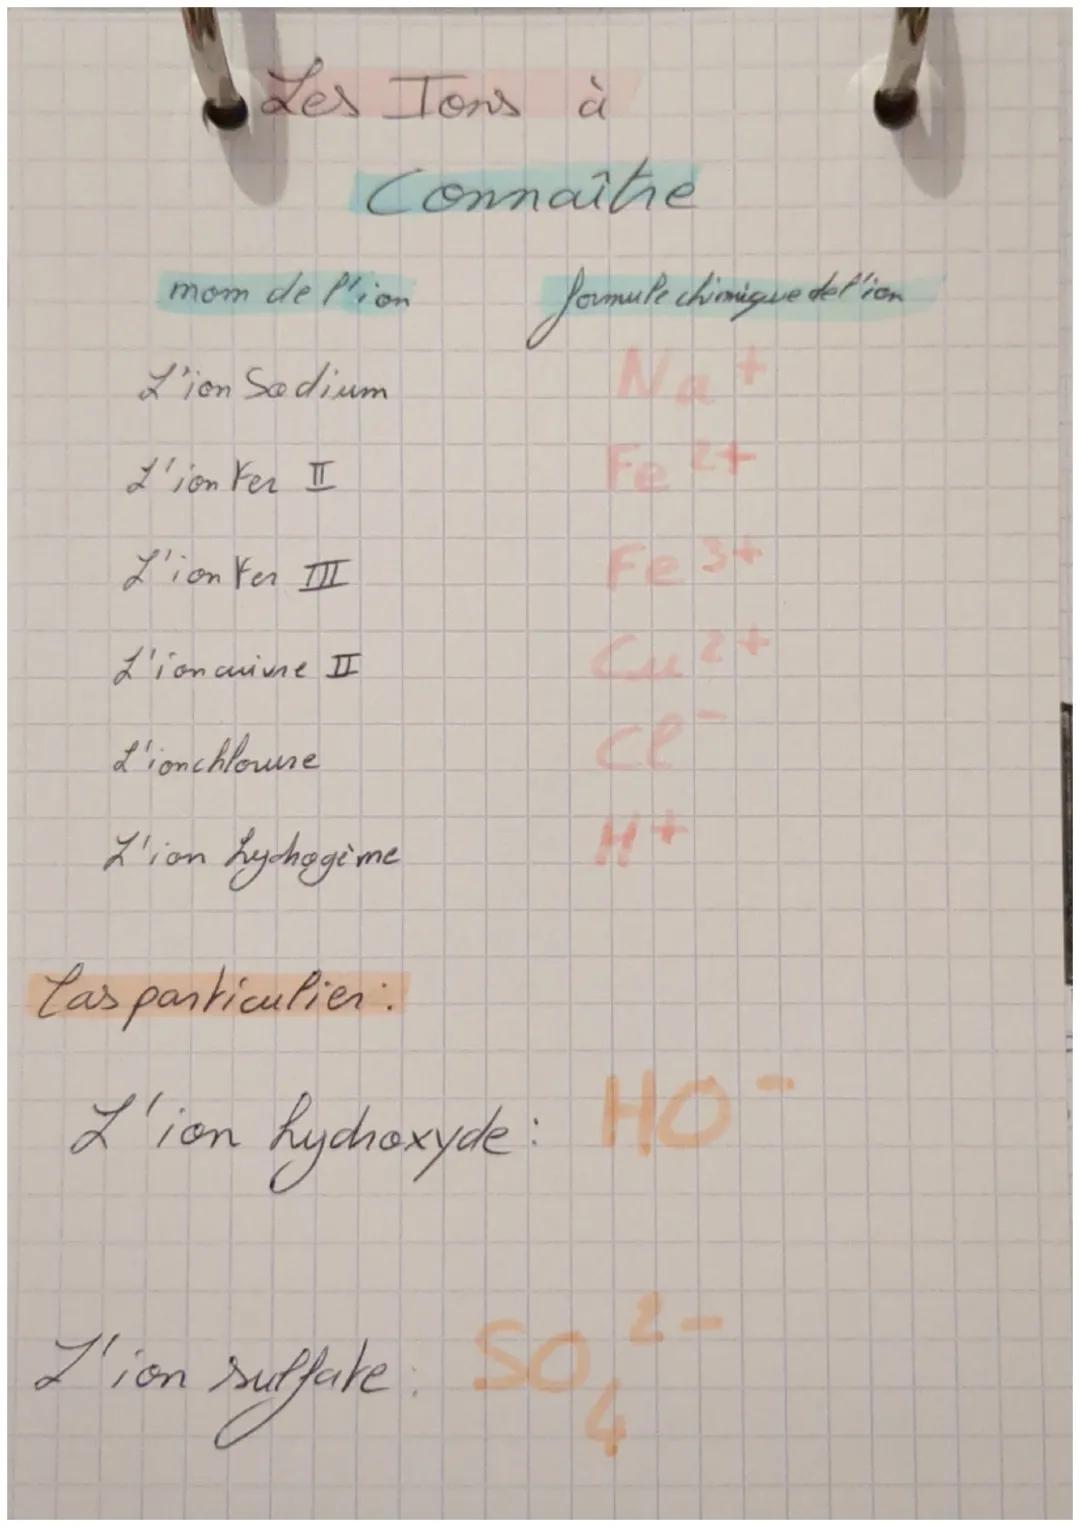 Les Ions à
Connaître
nom de l'ion formule chimique de l'ion
L'ion Sodium Na+
L'ion Fer II Fe 2+
L'ion Fer III Fe 3+
L'ion cuivre II Cu 2+
L'ion chlorure Cl-
L'ion hydrogène H+
Cas particulier :
L'ion hydroxyde : HO-
L'ion sulfate : SO4 2-